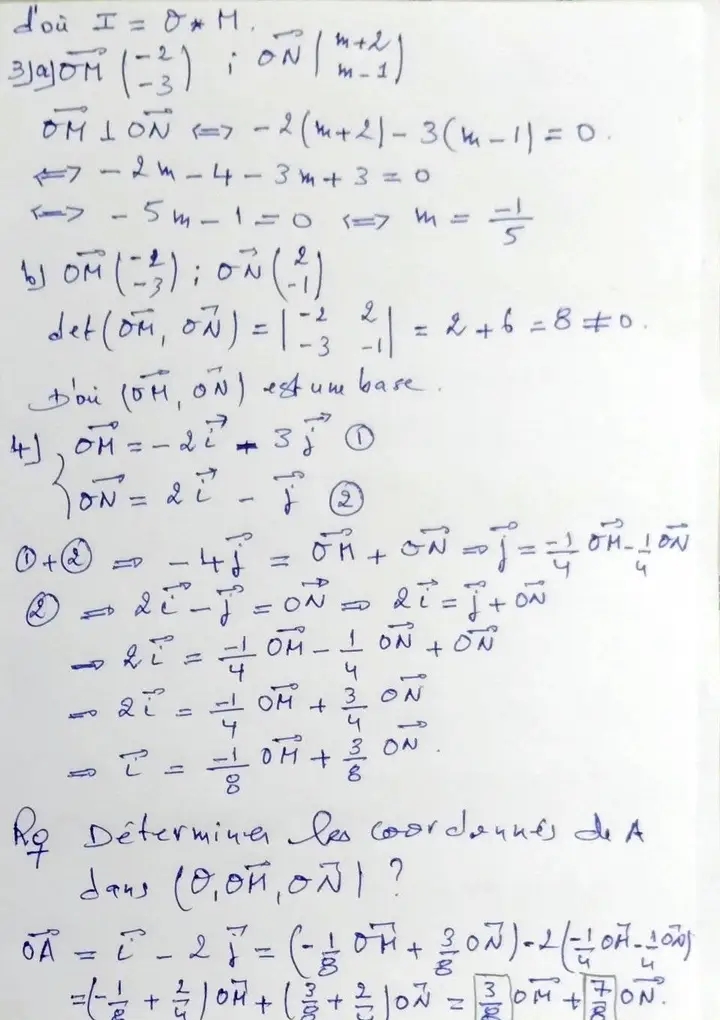 d'où I = O * M.
3)a) OM⃗ (-2 -3) ; ON⃗ (m+2 m-1)
OM⃗ ⊥ ON⃗ <=> -2(m+2) - 3(m-1) = 0.
<=> -2m - 4 - 3m + 3 = 0
<=> -5m - 1 = 0 <=> m = -1/5
b) OM⃗ (-2 -3) ; ON⃗ (2 -1)
det(OM⃗, ON⃗) = |-2 2 -3 -1| = 2 + 6 = 8 ≠ 0.
D'où (OM⃗, ON⃗) est une base.
4) { OM⃗ = -2i⃗ - 3j⃗ ①
ON⃗ = 2i⃗ - j⃗ ②
① + ② => -4j⃗ = OM⃗ + ON⃗ => j⃗ = -1/4 OM⃗ - 1/4 ON⃗
② => 2i⃗ - j⃗ = ON⃗ => 2i⃗ = j⃗ + ON⃗
=> 2i⃗ = -1/4 OM⃗ - 1/4 ON⃗ + ON⃗
=> 2i⃗ = -1/4 OM⃗ + 3/4 ON⃗
=> i⃗ = -1/8 OM⃗ + 3/8 ON⃗.
Rq Déterminer les coordonnés de A
dans (O, OM⃗, ON⃗) ?
OA⃗ = i⃗ - 2j⃗ = (-1/8 OM⃗ + 3/8 ON⃗) - 2(-1/4 OM⃗ - 1/4 ON⃗)
= (-1/8 + 2/4) OM⃗ + (3/8 + 2/4) ON⃗ = 3/8 OM⃗ + 7/8 ON⃗.